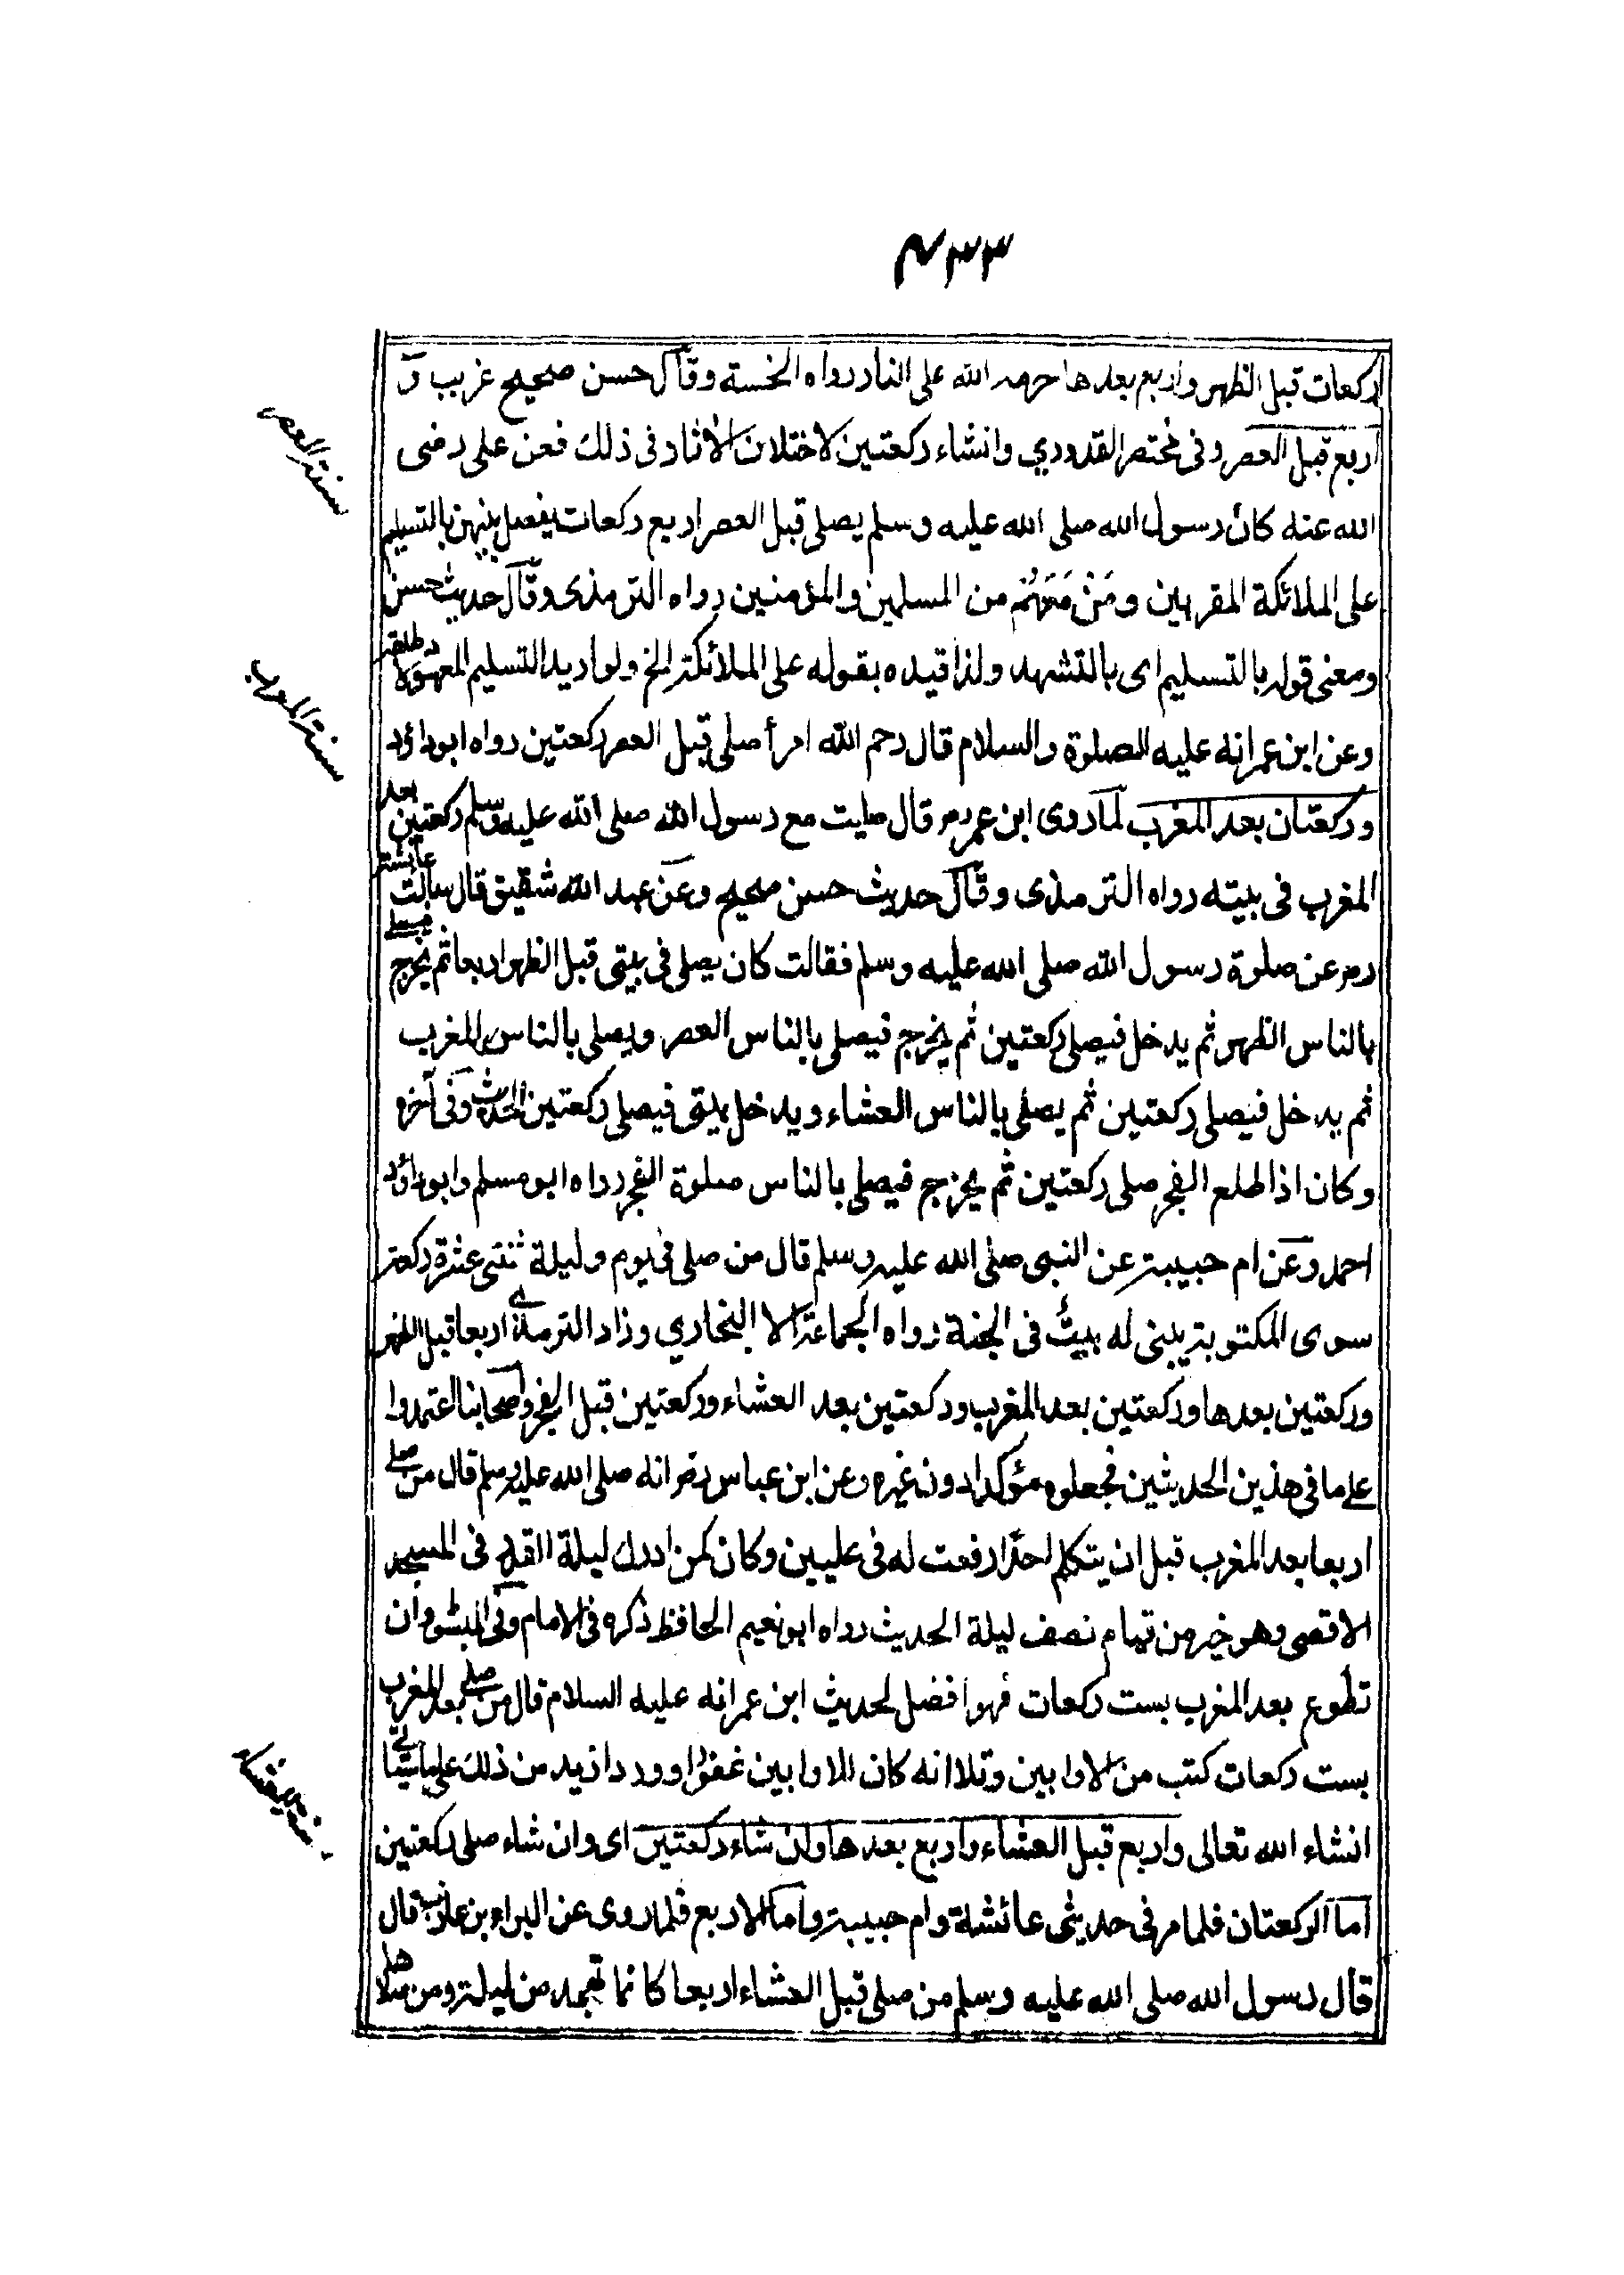 ركعات قبل الظهر واربع بعدها حرمه الله على النار رواه الخمسة وقال حسن صحيح غريب و
اربع قبل العصر وفى مختصر القدوري وانشاء ركعتين لاختلاف الاثار فى ذلك فعن على رضى
سنة العصر
الله عنه كان رسول الله صلى الله عليه وسلم يصلى قبل العصر اربع ركعات يفصل بينهن بالتسليم
على الملائكة المقربين ومَنْ مَعَهُم من المسلمين والمؤمنين رواه الترمذى وقال حديث حسن
ومعنى قوله بالتسليم اى بالتشهد ولذا قيده بقوله على الملائكة الخ ولو اريد التسليم المعهود
سنة المغرب
وعن ابن عمر انه عليه الصلوة والسلام قال رحم الله امرأ صلى قبل العصر ركعتين رواه ابو داؤد
وركعتان بعد المغرب لما روى ابن عمر رض قال صليت مع رسول الله صلى الله عليه وسلم ركعتين بعد
المغرب فى بيته رواه الترمذى وقال حديث حسن صحيح وعن عبد الله شقيق قال سالت عائشة
رض عن صلوة رسول الله صلى الله عليه وسلم فقالت كان يصلى فى بيتى قبل الظهر اربعا ثم يخرج فيصلى
بالناس الظهر ثم يدخل فيصلى ركعتين ثم يخرج فيصلى بالناس العصر ويصلى بالناس المغرب
ثم يدخل فيصلى ركعتين ثم يصلى بالناس العشاء ويدخل بيتى فيصلى ركعتين الحديث وفى آخره
وكان اذا طلع الفجر صلى ركعتين ثم يخرج فيصلى بالناس صلوة الفجر رواه ابو مسلم وابو داؤد
احمد وعن ام حبيبة عن النبى صلى الله عليه وسلم قال من صلى فى يوم وليلة ثنتى عشرة ركعة
سوى المكتوبة يبنى له بيتٌ فى الجنة رواه الجماعة الا البخاري وزاد الترمذى اربعا قبل الظهر
وركعتين بعدها وركعتين بعد المغرب وركعتين بعد العشاء وركعتين قبل الفجر واصحابنا اعتمدوا
على ما فى هذين الحديثين فجعلوه مؤكدا دون غيره وعن ابن عباس رض انه صلى الله عليه وسلم قال من صلى
اربعا بعد المغرب قبل ان يتكلم احدًا رفعت له فى عليين وكان كمن ادرك ليلة القدر فى المسجد
الاقصى وهو خير من قيام نصف ليلة الحديث رواه ابو نعيم الحافظ ذكره فى الامام وفى المبسوط وان
تطوع بعد المغرب بست ركعات فهو افضل لحديث ابن عمر انه عليه السلام قال من صلى بعد المغرب
بست ركعات كتب من الاوابين وتلا انه كان للاوابين غفورا وورد ازيد من ذلك على ما سيأتى
انشاء الله تعالى واربع قبل العشاء واربع بعدها وان شاء ركعتين اى وان شاء صلى ركعتين
سنة العشاء
اما الركعتان فلما مر فى حديثى عائشة وام حبيبة واما الاربع فلما روى عن البراء بن عازب قال
قال رسول الله صلى الله عليه وسلم من صلى قبل العشاء اربعا كانما تهجد من ليلته ومن صلاهن